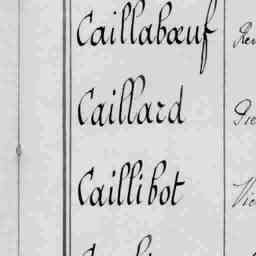 Caillabœuf
Caillard
Caillibot